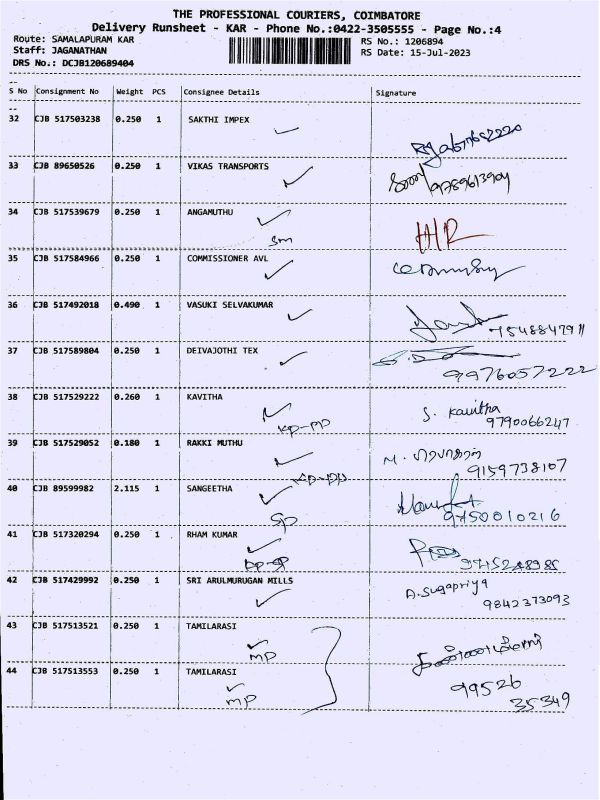 THE PROFESSIONAL COURIERS, COIMBATORE
Delivery Runsheet - KAR - Phone No.:0422-3505555 - Page No.:4
Route: SAMALAPURAM KAR
RS No.: 1206894
Staff: JAGANATHAN
RS Date: 15-Jul-2023
DRS No.: DCJB120689404
S No Consignment No Weight PCS Consignee Details Signature
32 CJB 517503238 0.250 1 SAKTHI IMPEX
33 CJB 89650526 0.250 1 VIKAS TRANSPORTS
9789613904
34 CJB 517539679 0.250 1 ANGAMUTHU
sm
35 CJB 517584966 0.250 1 COMMISSIONER AVL
36 CJB 517492018 0.490 1 VASUKI SELVAKUMAR
7548847911
37 CJB 517589804 0.250 1 DEIVAJOTHI TEX
9976057222
38 CJB 517529222 0.260 1 KAVITHA
S. Kavitha
kp-pp
9790066247
39 CJB 517529052 0.180 1 RAKKI MUTHU
M.
9159738107
kp-pp
40 CJB 89599982 2.115 1 SANGEETHA
9750010216
SP
41 CJB 517320294 0.250 1 RHAM KUMAR
42 CJB 517429992 0.250 1 SRI ARULMURUGAN MILLS
A.Sugapriya
9842373093
43 CJB 517513521 0.250 1 TAMILARASI
mp
44 CJB 517513553 0.250 1 TAMILARASI
99526
mp
35349